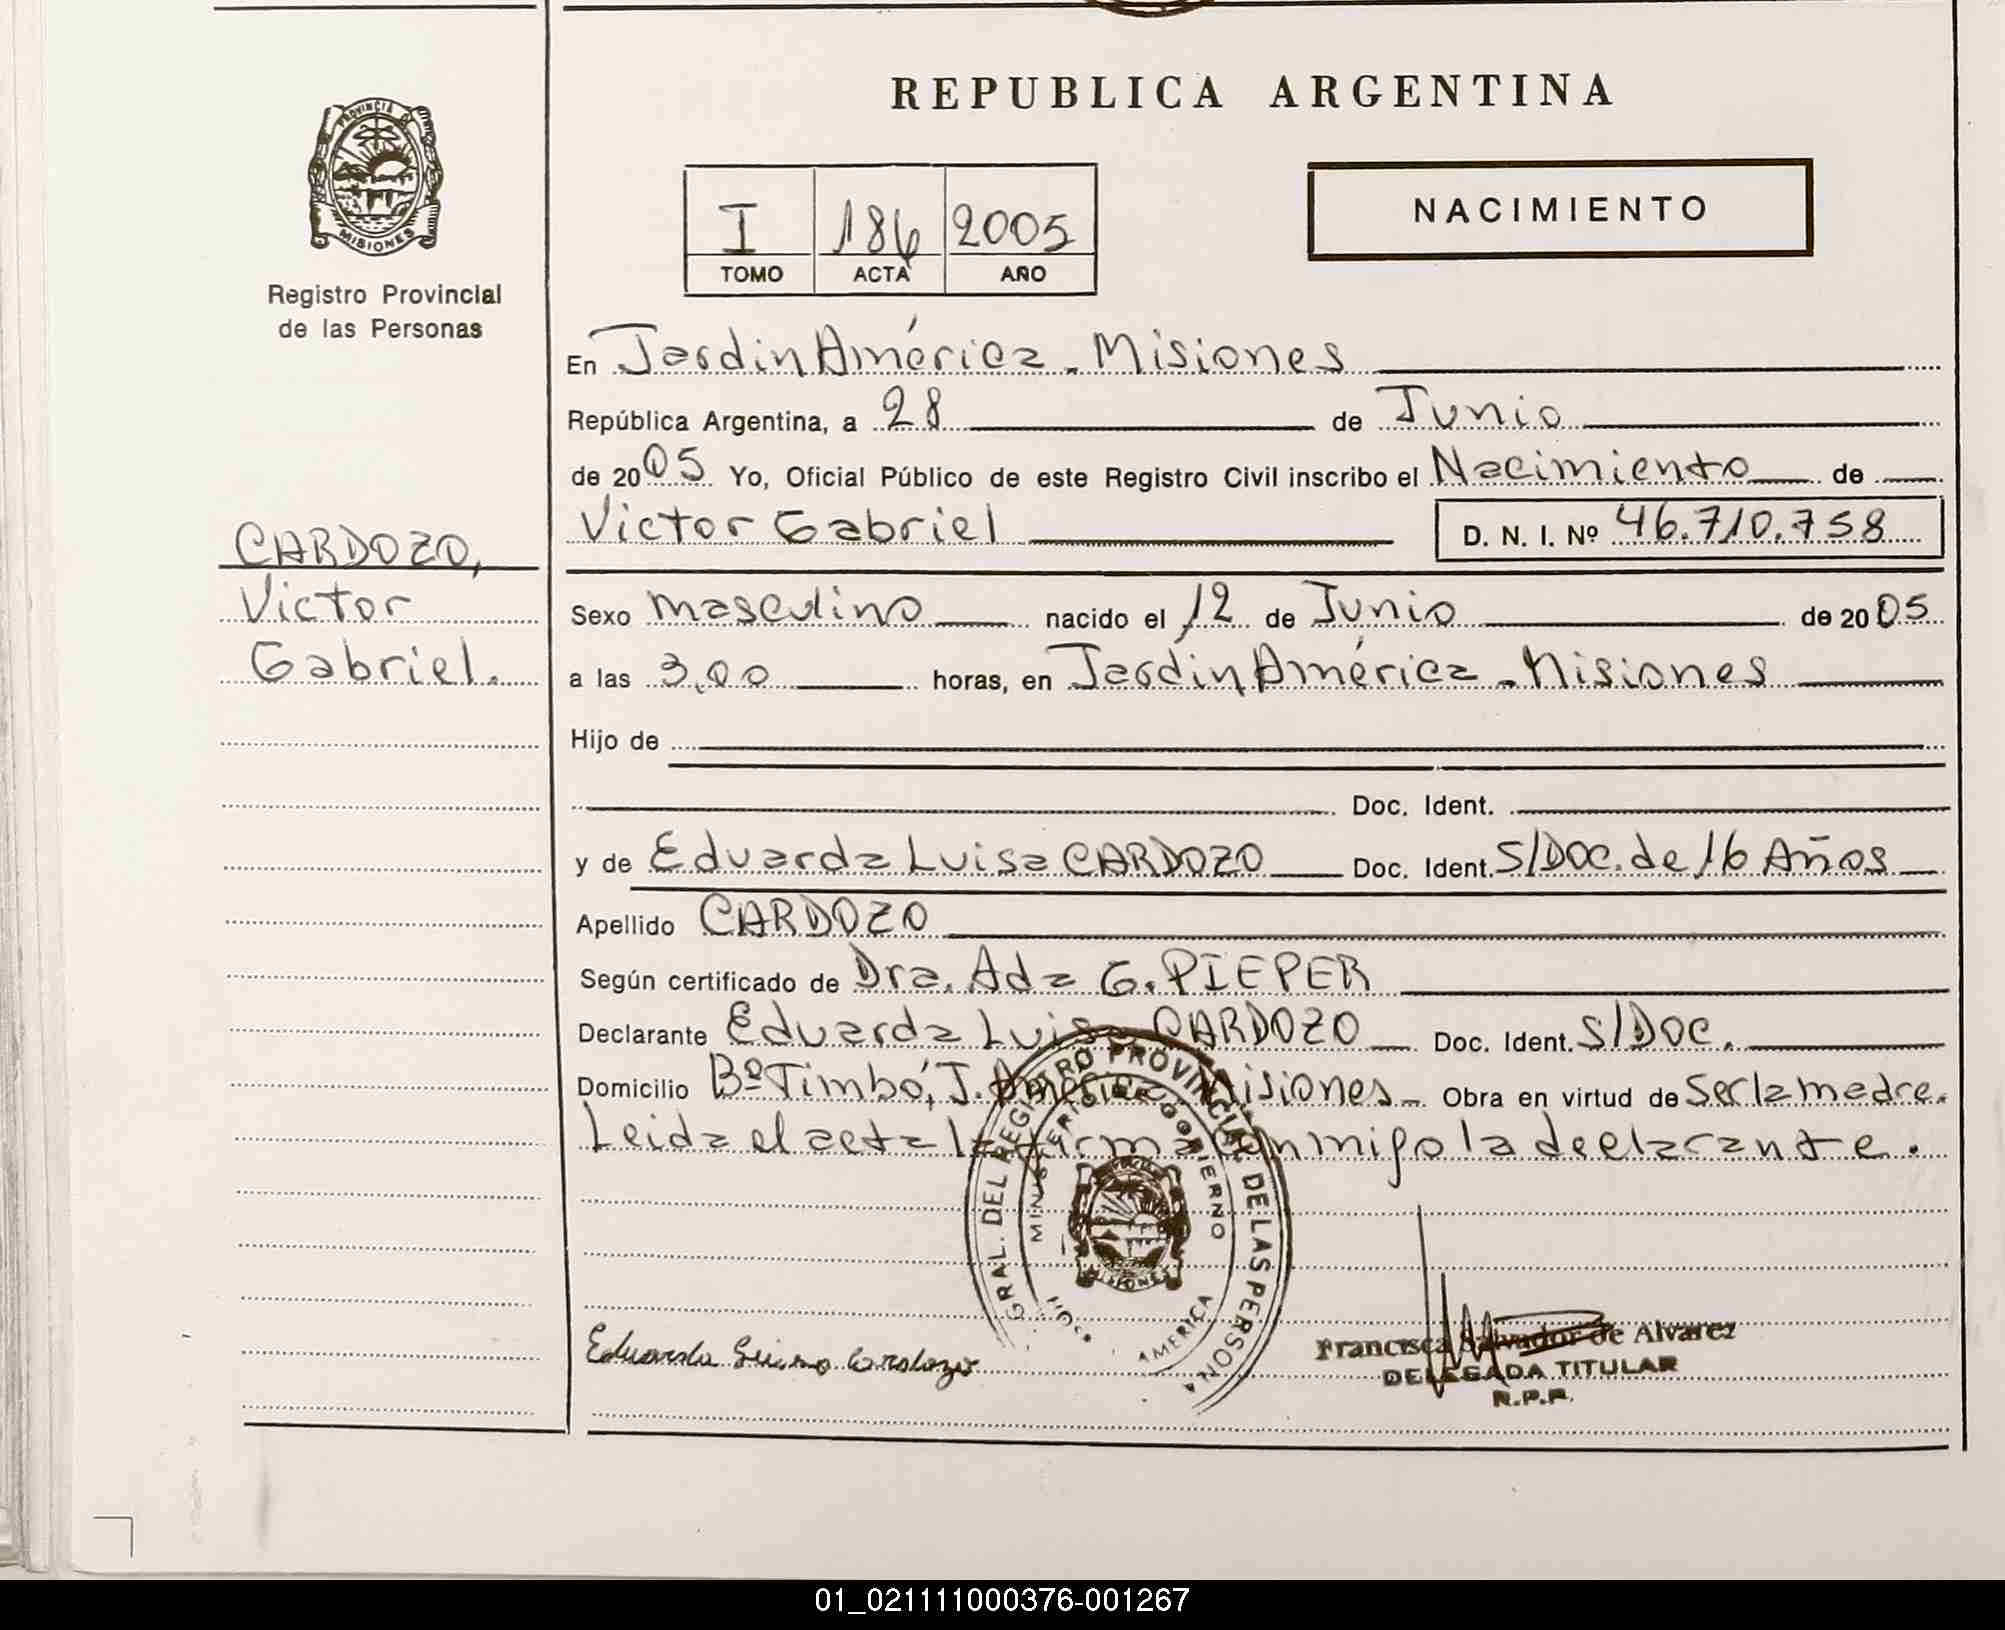 REPUBLICA ARGENTINA
PROVINCIA DE
MISIONES
Registro Provincial
de las Personas
I 186 2005
TOMO ACTA AÑO
NACIMIENTO
En Jardin América - Misiones
República Argentina, a 28 de Junio
de 2005 Yo, Oficial Público de este Registro Civil inscribo el Nacimiento de
Victor Gabriel D. N. I. Nº 46.710.758
CARDOZO,
Victor
Gabriel.
Sexo masculino nacido el 12 de Junio de 2005
a las 3,00 horas, en Jardin América - Misiones
Hijo de
Doc. Ident.
y de Eduarda Luisa CARDOZO Doc. Ident. S/DOC. de 16 Años
Apellido CARDOZO
Según certificado de Dra. Ada G. PIEPER
Declarante Eduarda Luisa CARDOZO Doc. Ident. S/DOC.
Domicilio Bº Timbó, J. América Misiones - Obra en virtud de Ser la madre.
Leida el acta la firma conmigo la declarante.
GRAL. DEL REGISTRO PROVINCIAL DE LAS PERSONA
MINISTERIO DE GOBIERNO
MISIONES
AMERICA
Eduarda Cardozo
Francisca Salvador de Alvarez
DELEGADA TITULAR
R.P.P.
01_021111000376-001267